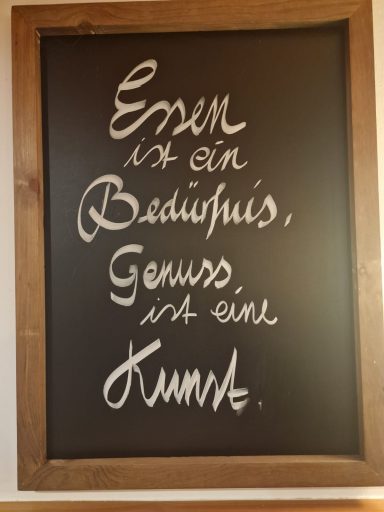 Essen
ist ein
Bedürfnis,
Genuss
ist eine
Kunst.